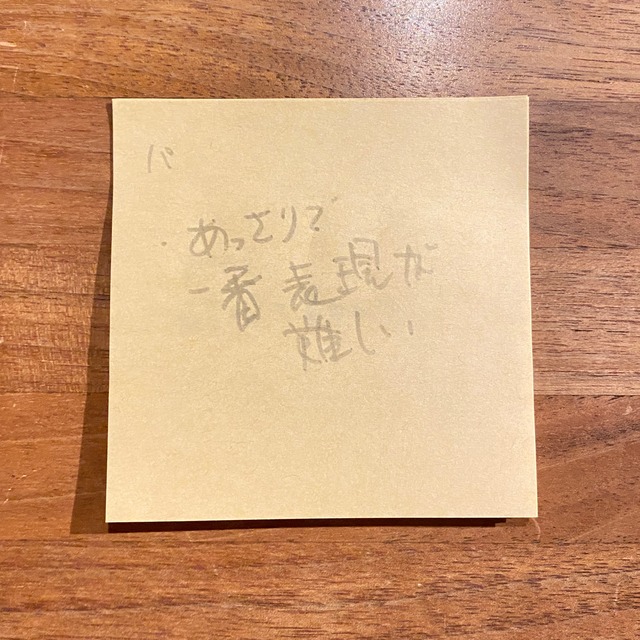 パ
・あっさりで
一番表現が
難しい